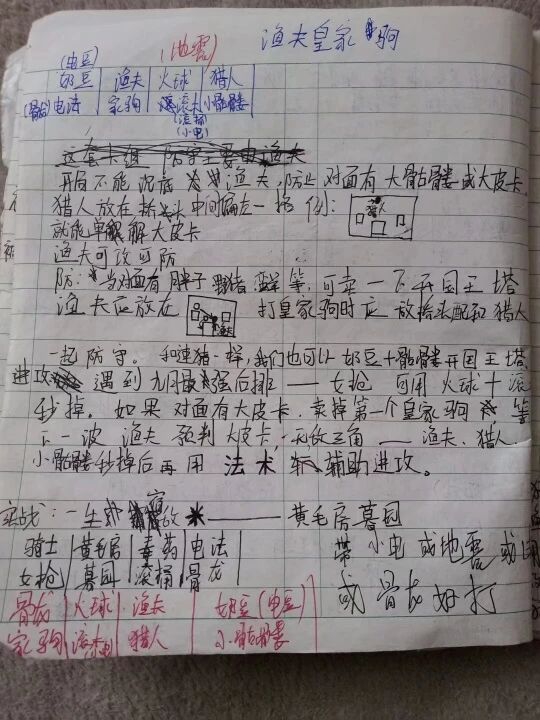 渔夫皇家驹
(电豆) (地震)
奶豆 渔夫 火球 猎人
(骨龙)电法 家驹 滚木 小骷髅
(滚桶)
(小电)
这套卡组 防守主要由渔夫
开局不能沉底 渔夫,防止对面有大骷髅或大皮卡
猎人放在桥头中间偏左一格 例:
就能单解大皮卡
渔夫可攻可防
防:当对面有胖子 野猪 等,可卖一下开国王塔
渔夫应放在 打皇家驹时应放桥头配和猎人
一起防守。和速猪一样,我们也可以奶豆+骷髅开国王塔
进攻 遇到九月最强后排——女枪 可用火球+滚
秒掉。如果对面有大皮卡,卖掉第一个皇家驹 等
下一波 渔夫预判大皮卡,无敌三角——渔夫、猎人
小骷髅秒掉后再用法术 辅助进攻。
实战:一生 敌 —— 黄毛房墓园
骑士 黄毛房 毒药 电法 带小电或地震或
女枪 墓园 滚桶 骨龙 或骨龙好打
骨龙 火球 渔夫 奶豆(电豆)
家驹 滚木 猎人 小骷髅